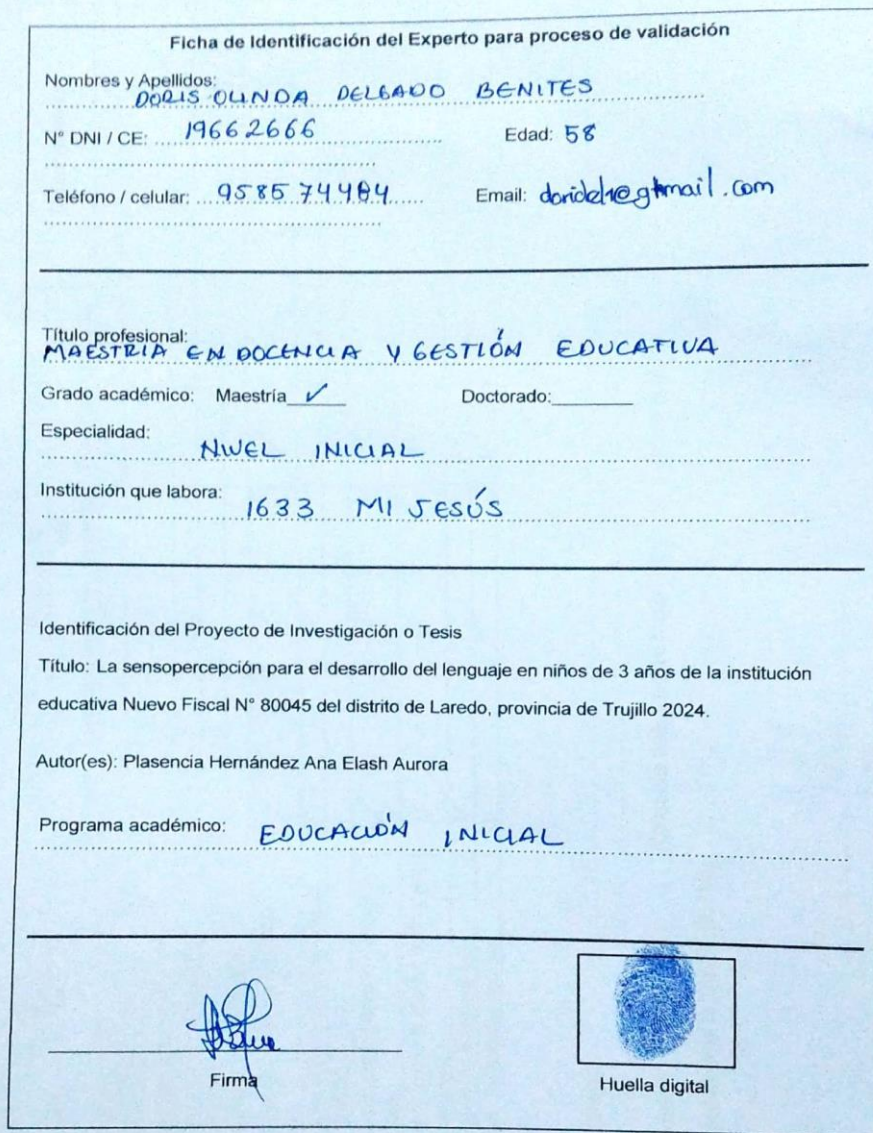 Ficha de Identificación del Experto para proceso de validación
Nombres y Apellidos:
DORIS OLINDA DELGADO BENITES
N° DNI / CE: 19662666 Edad: 58
Teléfono / celular: 958574484 Email:
Título profesional:
MAESTRIA EN DOCENCIA Y GESTIÓN EDUCATIVA
Grado académico: Maestría ✓ Doctorado:
Especialidad:
NIVEL INICIAL
Institución que labora:
1633 MI JESÚS
Identificación del Proyecto de Investigación o Tesis
Título: La sensopercepción para el desarrollo del lenguaje en niños de 3 años de la institución
educativa Nuevo Fiscal N° 80045 del distrito de Laredo, provincia de Trujillo 2024.
Autor(es): Plasencia Hernández Ana Elash Aurora
Programa académico: EDUCACIÓN INICIAL
Firma Huella digital